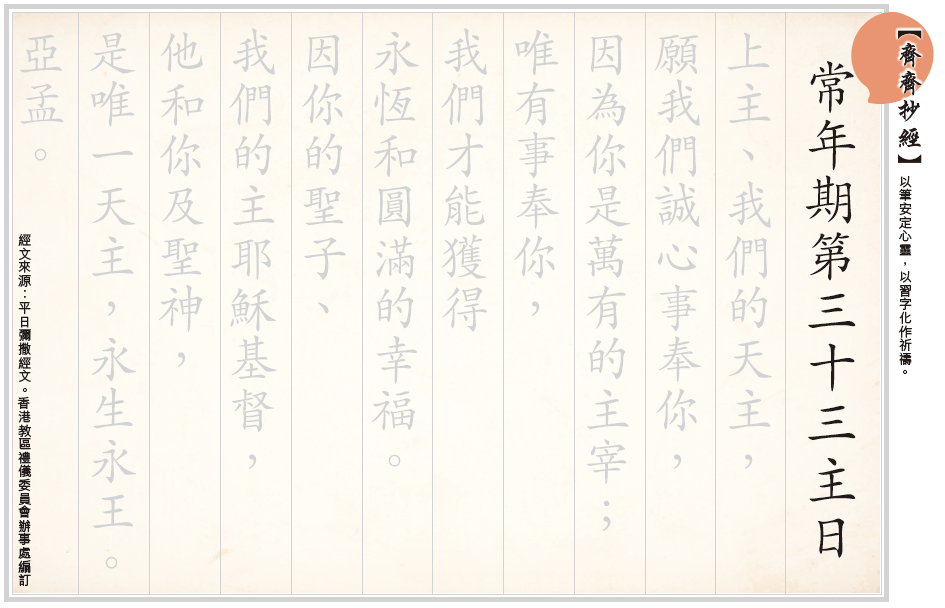 【齊齊抄經】
以筆安定心靈，以習字化作祈禱。
常年期第三十三主日
上主、我們的天主，
願我們誠心事奉你，
因為你是萬有的主宰；
唯有事奉你，
我們才能獲得
永恆和圓滿的幸福。
因你的聖子、
我們的主耶穌基督，
他和你及聖神，
是唯一天主，永生永王。
亞孟。
經文來源：平日彌撒經文。香港教區禮儀委員會辦事處編訂